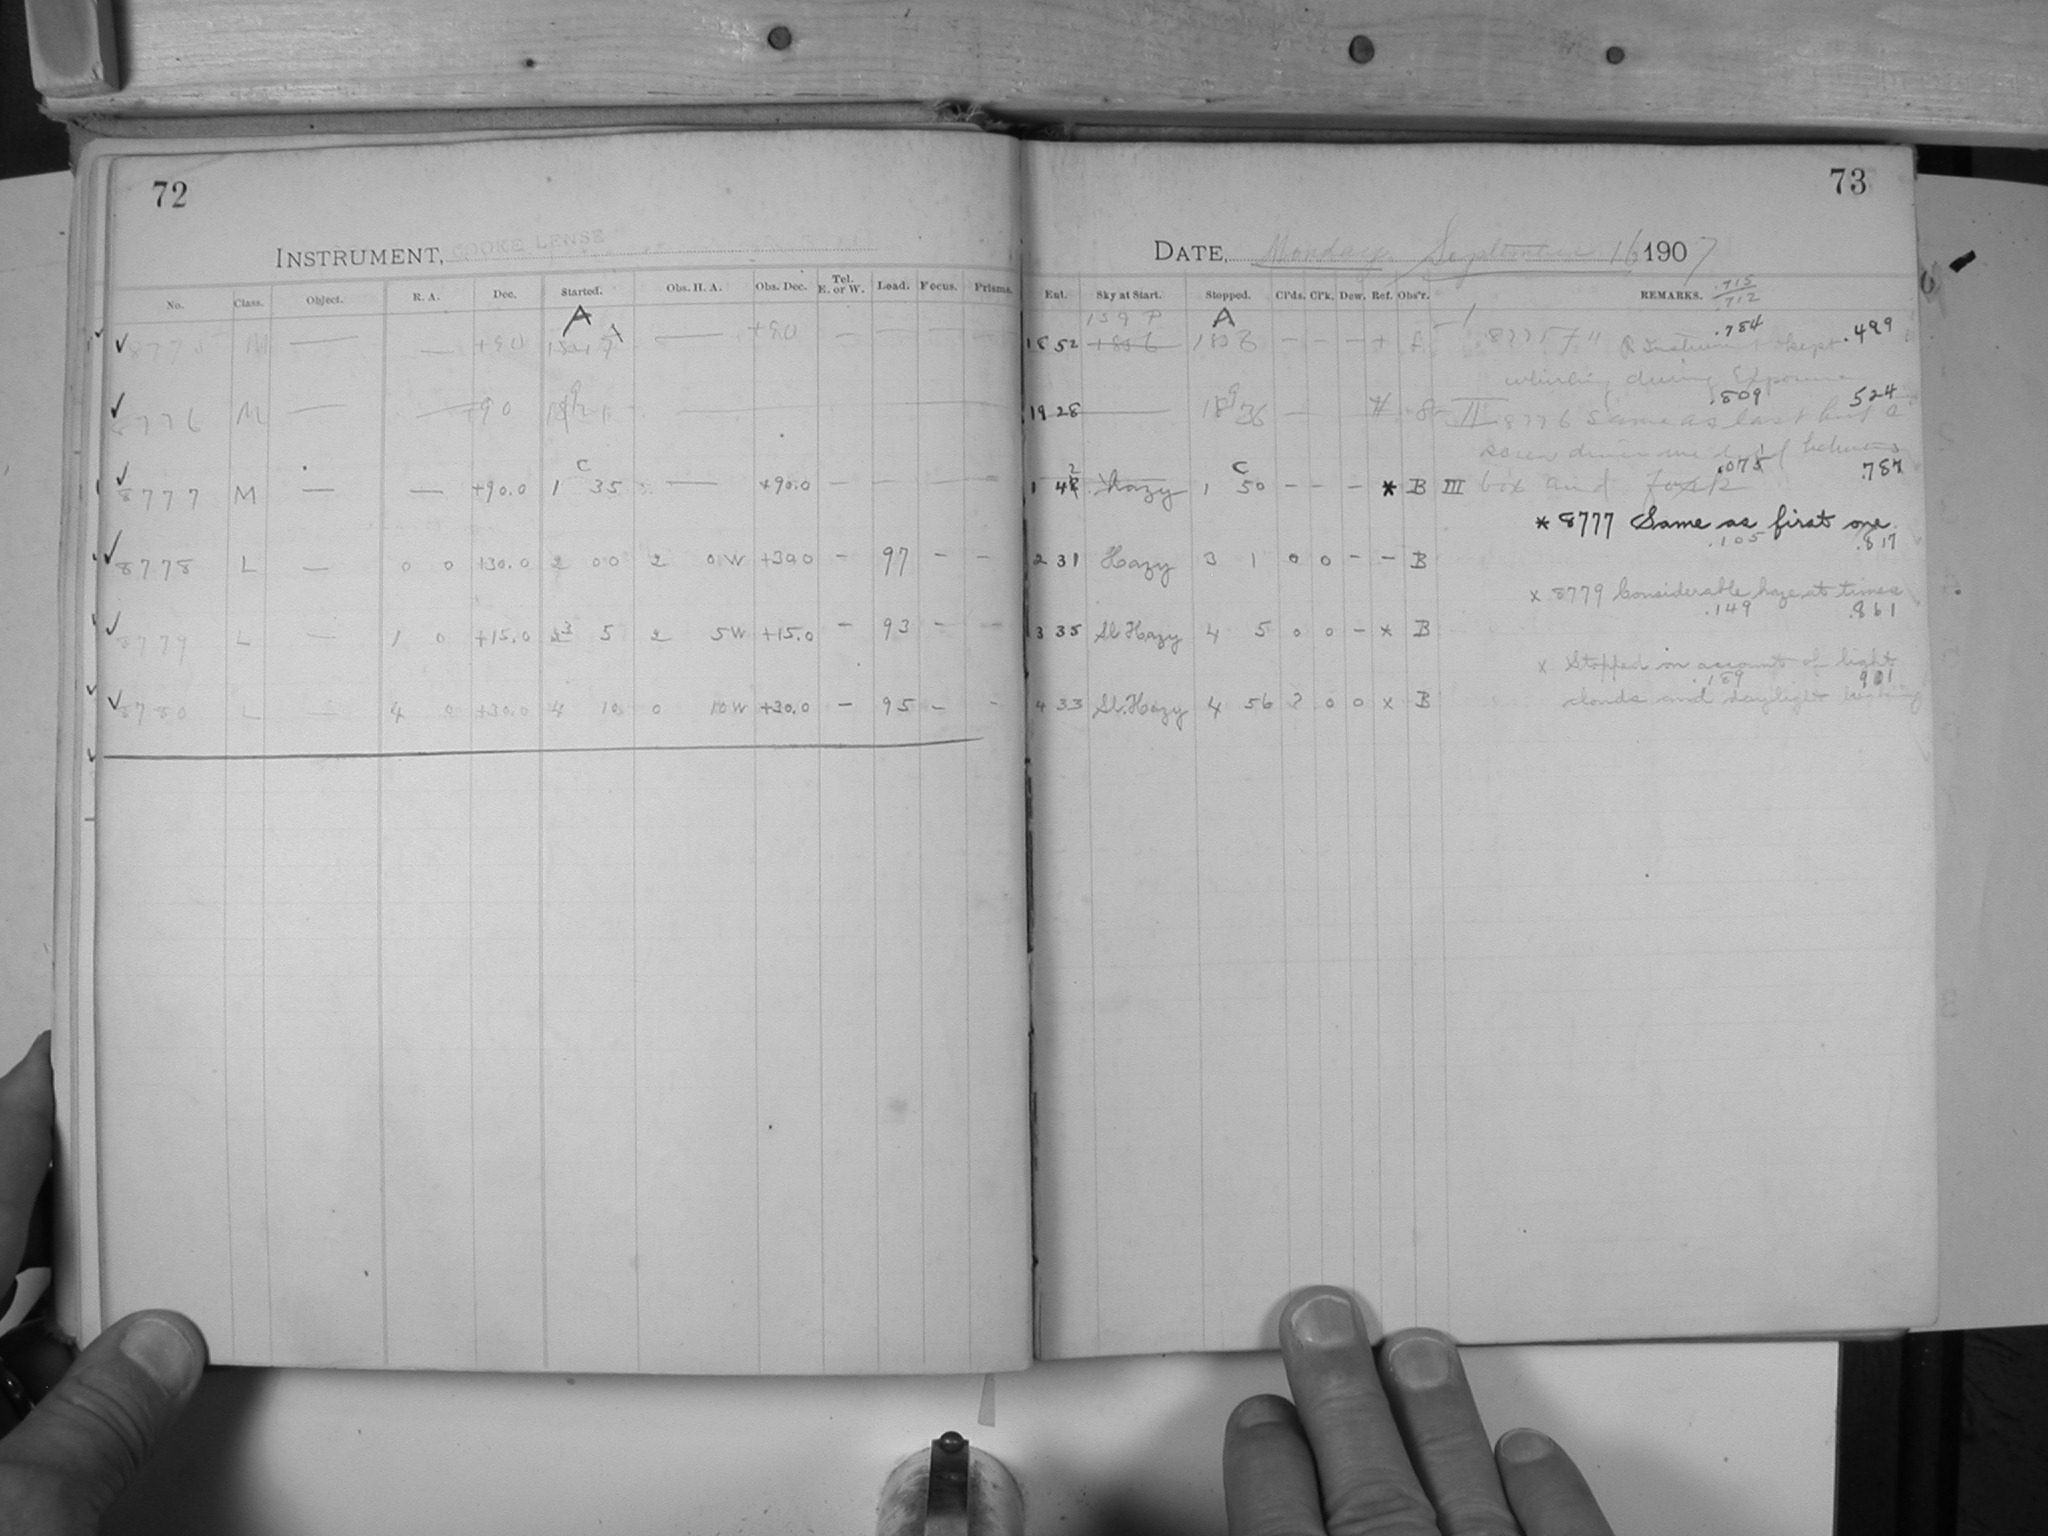 72
INSTRUMENT, COOKE LENSE
No. Class. Object. R. A. Dec. Started. Obs. H. A. Obs. Dec. Tel. E. or W. Load. Focus. Prisms.
A
✓ 8775 M — — +90 — +90 — — — —
✓ 8776 M — — +90
C
✓ 8777 M — — +90.0 1 35 — +90.0 — — — —
✓ 8778 L — 0 0 +30.0 2 00 2 0W +30.0 — 97 — —
✓ 8779 L — 1 0 +15.0 3 5 2 5W +15.0 — 93 — —
✓ 8780 L — 4 0 +30.0 4 10 0 10W +30.0 — 95 — —
73
DATE, Monday, September 16 1907
Ent. Sky at Start. Stopped. Cl'ds. Cl'k. Dew. Ref. Obs'r. REMARKS. .715
.712
A
18 52 — — — + I 8775 Instrument kept .784 .499
whirling during Exposure
19 28 — II 8776 Same as last but a .809 524
C
1 42 Hazy 1 50 — — — * B III box and .075 .787
* 8777 Same as first one.
.105 .817
2 31 Hazy 3 1 0 0 — — B
x 8779 Considerable haze at times
.149 .861
3 35 Sl. Hazy 4 5 0 0 — * B
x Stopped on account of light
.189 901
4 33 Sl. Hazy 4 56 ? 0 0 x B clouds and daylight